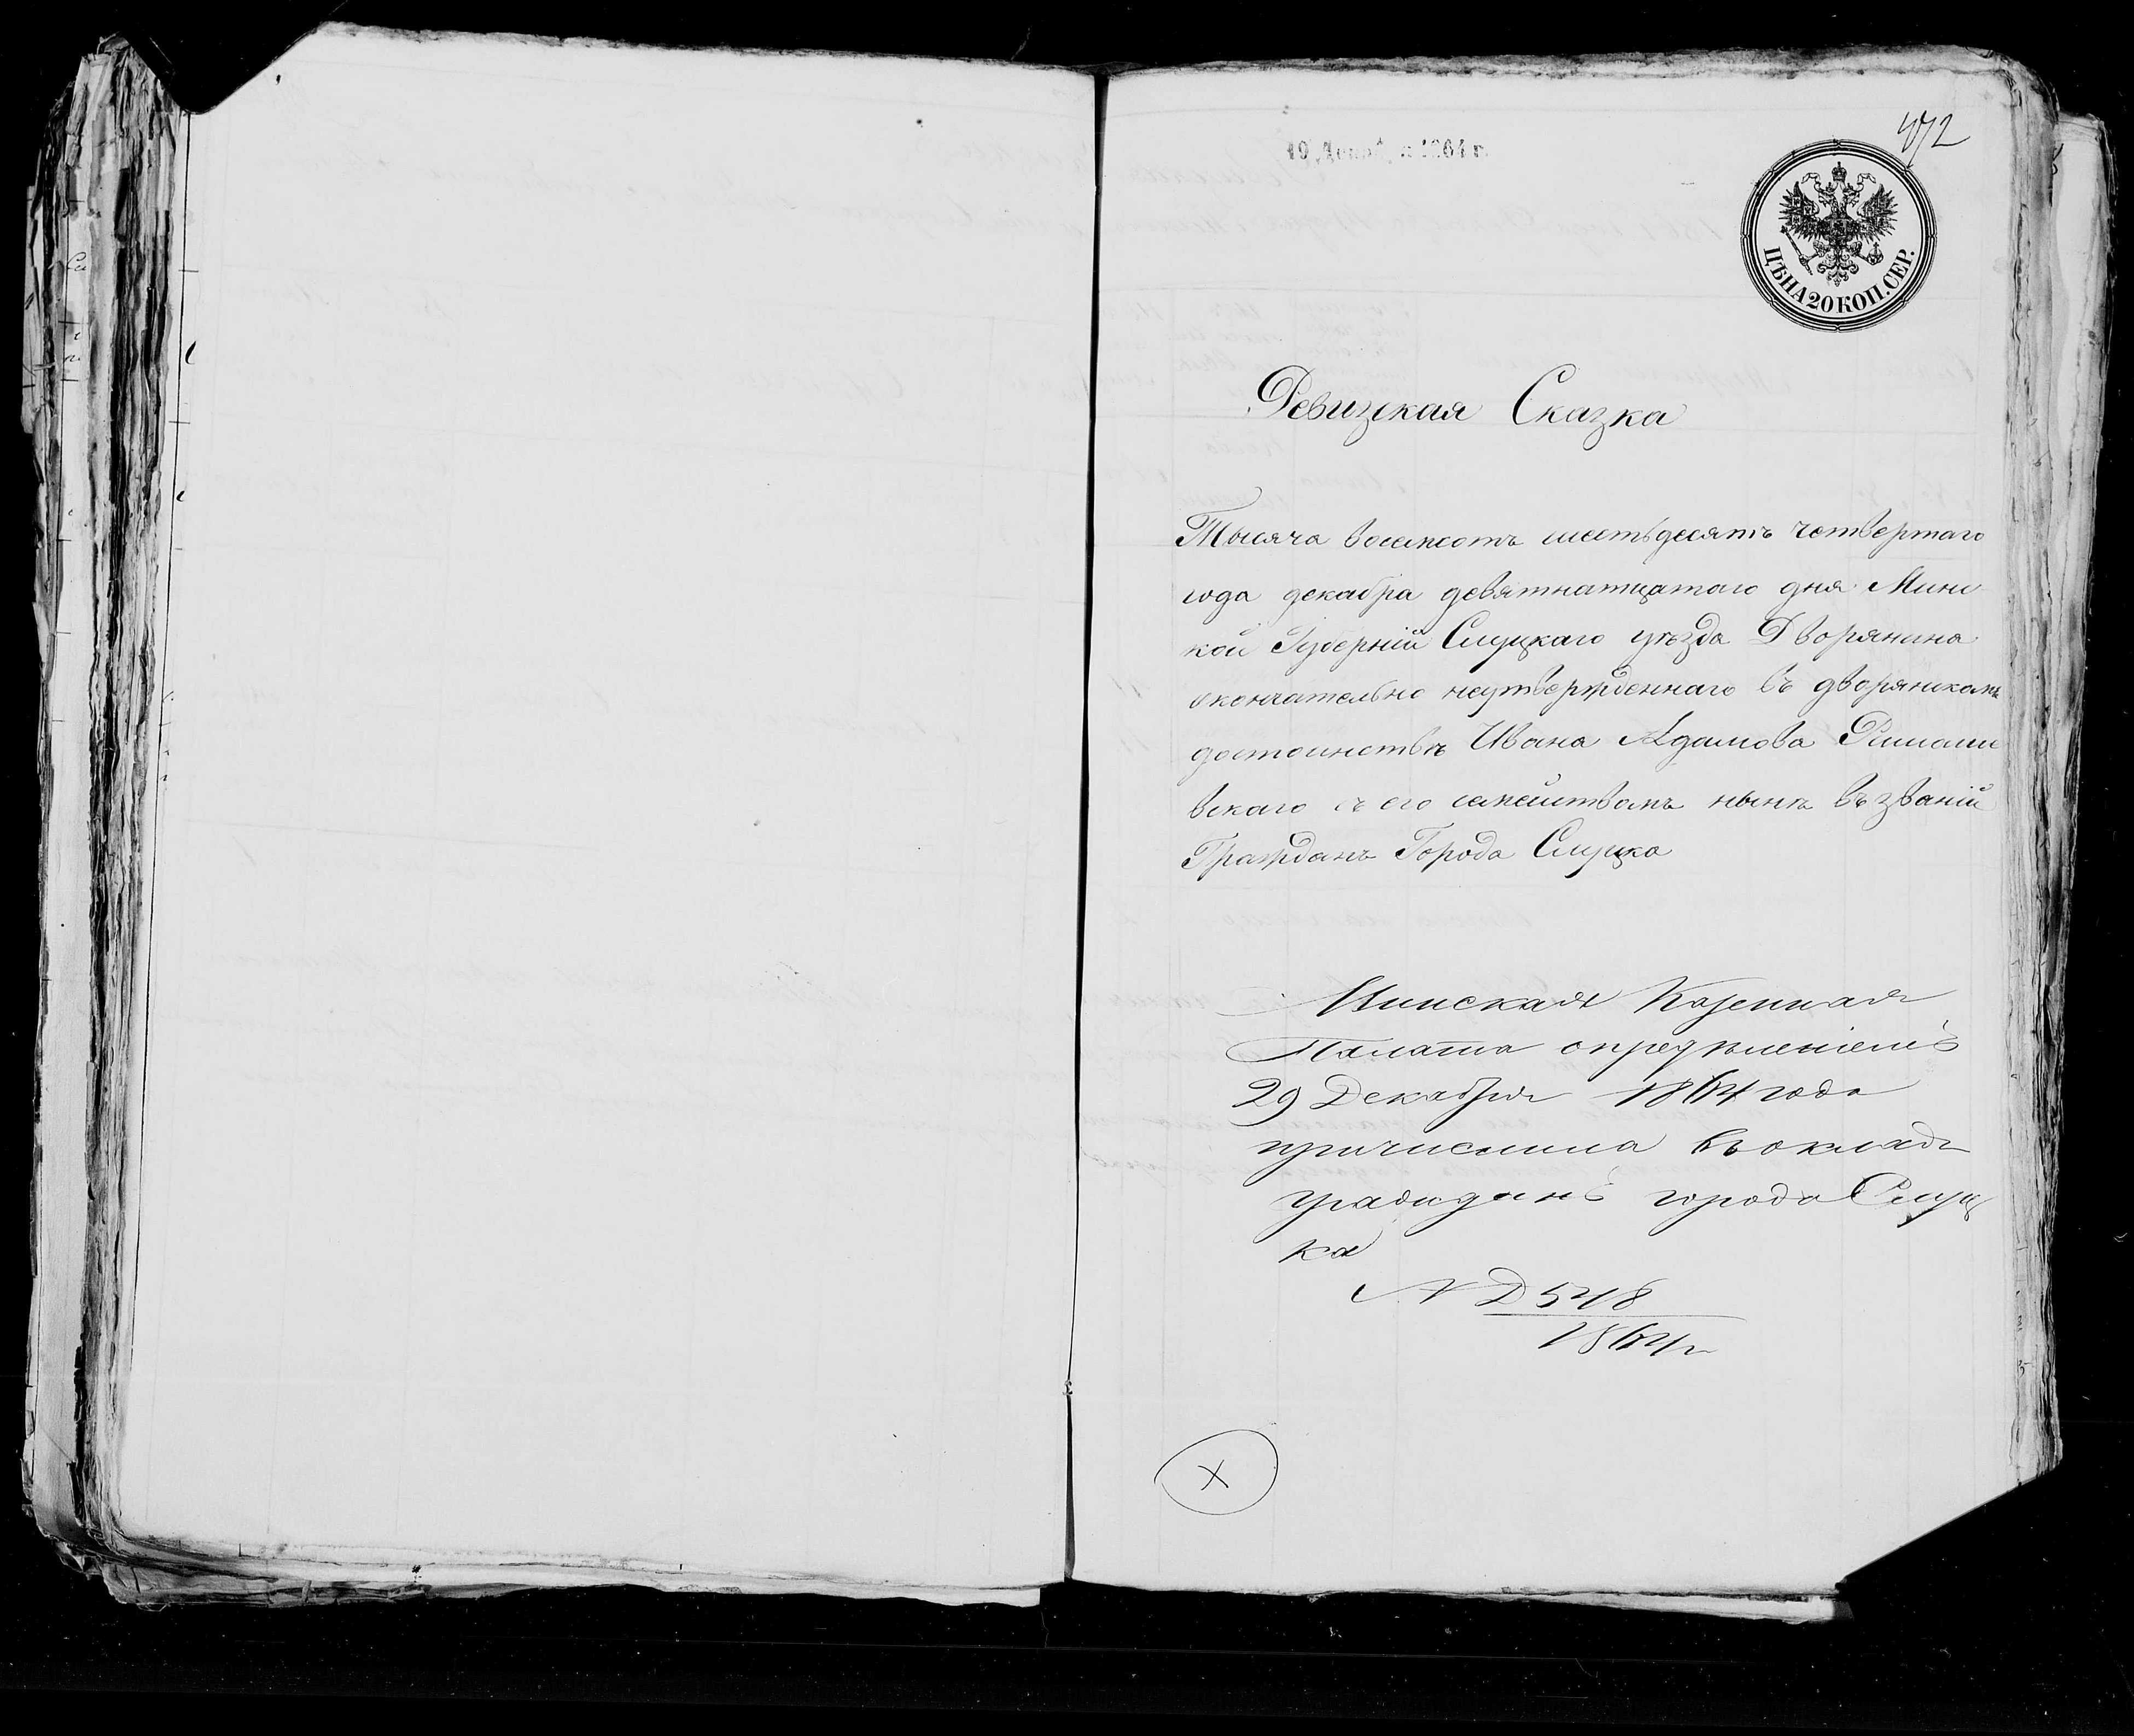 472
19 Декаб 1864 г.
ЦѢНА 20 КОП. СЕР.
Ревизская Сказка
Тысяча восемсотъ шестьдесятъ четвертаго
года декабра девятнатцатаго дня Минс
кой Губерніи Слуцкаго уѣзда Дворянина
окончательно неутвержденнаго въ дворянскомъ
достоинствѣ Ивана Адамова
вскаго съ его семействомъ нынѣ въ званіи
Гражданъ Города Слуцка
Минская Казенная
Палата опредѣленіемъ
29 Декабря 1864 года
причислила въ окладъ
гражданъ города Слуц
ка
N Д 548
1864 г
X